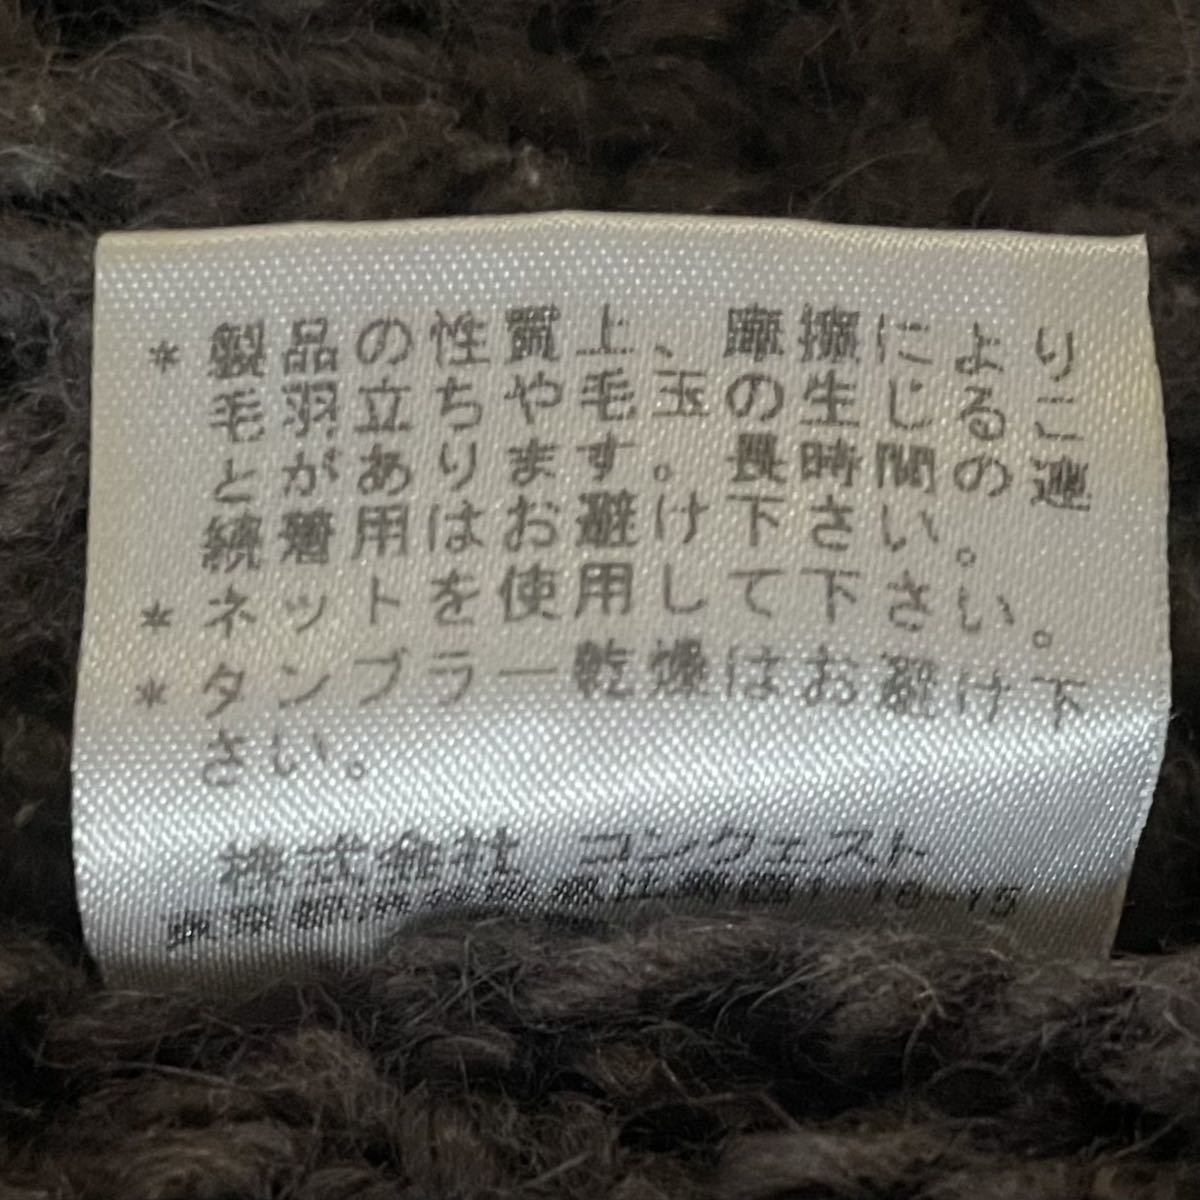 * 製品の性質上、摩擦により
毛羽立ちや毛玉の生じるこ
とがあります。長時間の連
続着用はお避け下さい。
* ネットを使用して下さい。
* タンブラー乾燥はお避け下
さい。
株式会社 コンクェスト
東京都渋谷区恵比寿西1-16-15